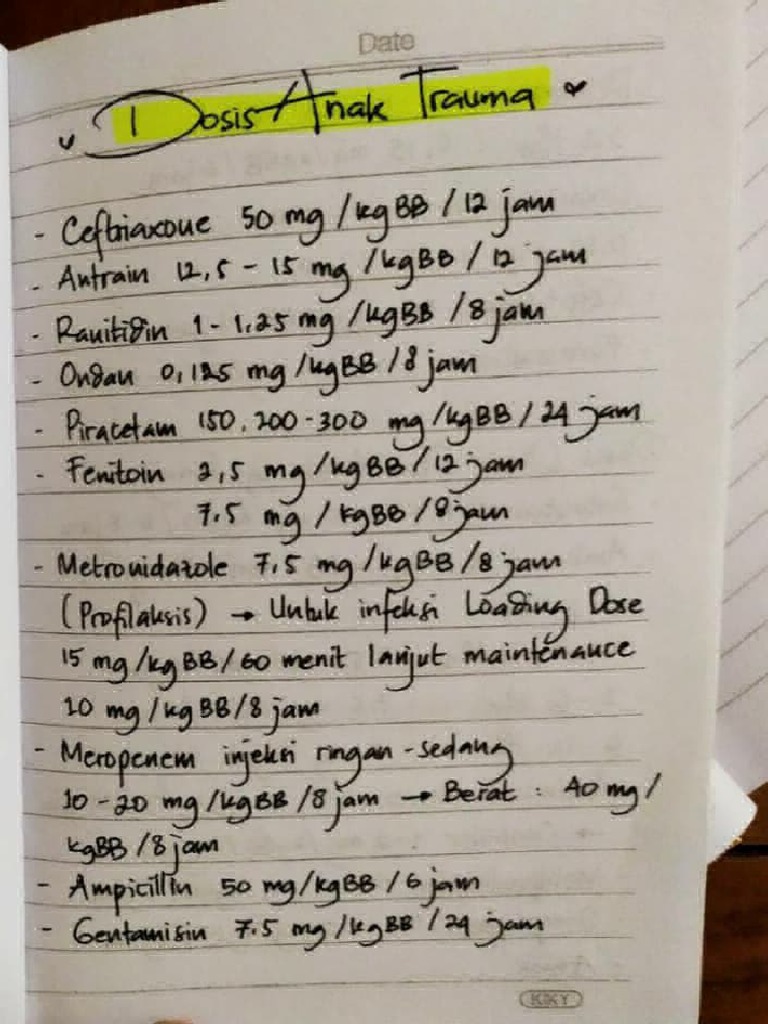 Date
Dosis Anak Trauma
- Ceftriaxone 50 mg /kgBB / 12 jam
- Antrain 12,5 - 15 mg /kgBB / 12 jam
- Ranitidin 1 - 1,25 mg /kgBB /8 jam
- Ondan 0,125 mg /kgBB /8 jam
- Piracetam 150. 200-300 mg /kgBB / 24 jam
- Fenitoin 2,5 mg /kgBB / 12 jam
7.5 mg / kgBB /8 jam
- Metronidazole 7,5 mg /kgBB /8 jam
(Profilaksis) → Untuk infeksi Loading Dose
15 mg/kgBB/60 menit lanjut maintenance
10 mg/kgBB/8 jam
- Meropenem injeksi ringan - sedang
10 - 20 mg /kgBB /8 jam → Berat : 40 mg /
kgBB /8 jam
- Ampicillin 50 mg/kgBB /6 jam
- Gentamisin 7.5 mg /kgBB /24 jam
KKY